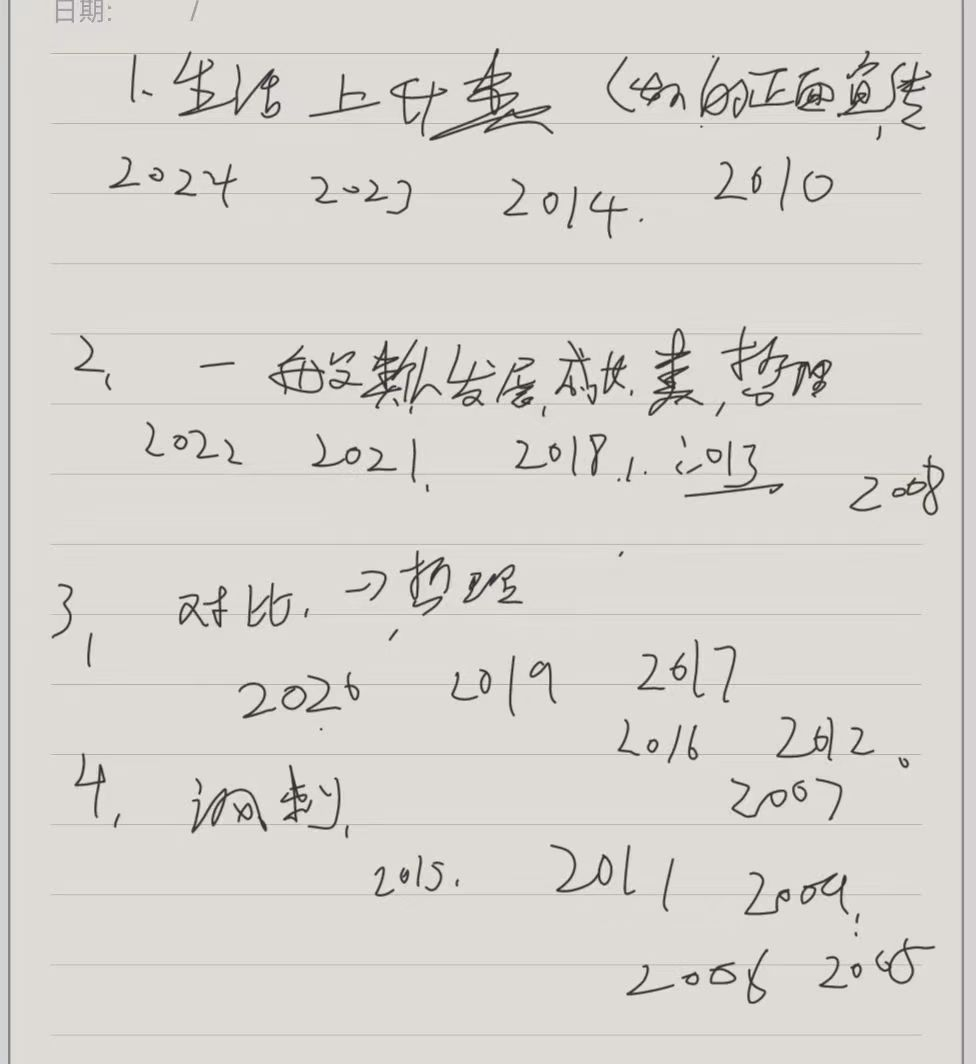 日期: /
1. 生活上升类 (的正面宣传
2024 2023 2014. 2010
2, 一般类, 发展, 成长类, 哲理
2022 2021, 2018, 2013
2008
3, 对比, → 哲理
2020 2019 2017
2016 2012.
4, 讽刺, 2007
2015. 2011 2009,
2006 2005